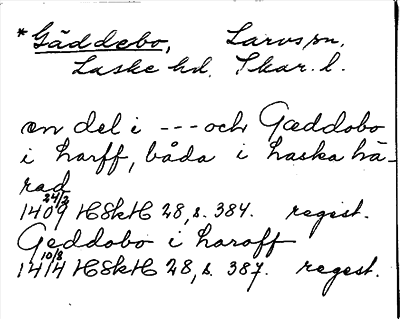 *Gäddebo, Larvs sn.
Laske hd. Skar. l.
en del i --- och Gæddobo
i harff, båda i haska hä-
rad
1409 24/2 HSkH 28, s. 384. regest.
Geddobo i haroff
1414 10/8 HSkH 28, s. 387. regest.